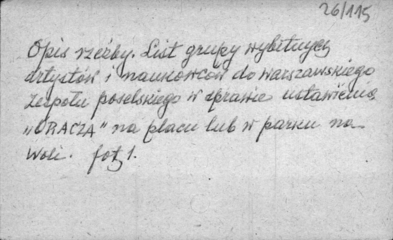 26/115
Opis rzeźby. List grupy wybitnych
artystów i naukowców do warszawskiego
zespołu poselskiego w sprawie ustawienia
„ORACZA" na placu lub w parku na
Woli. fot 1.